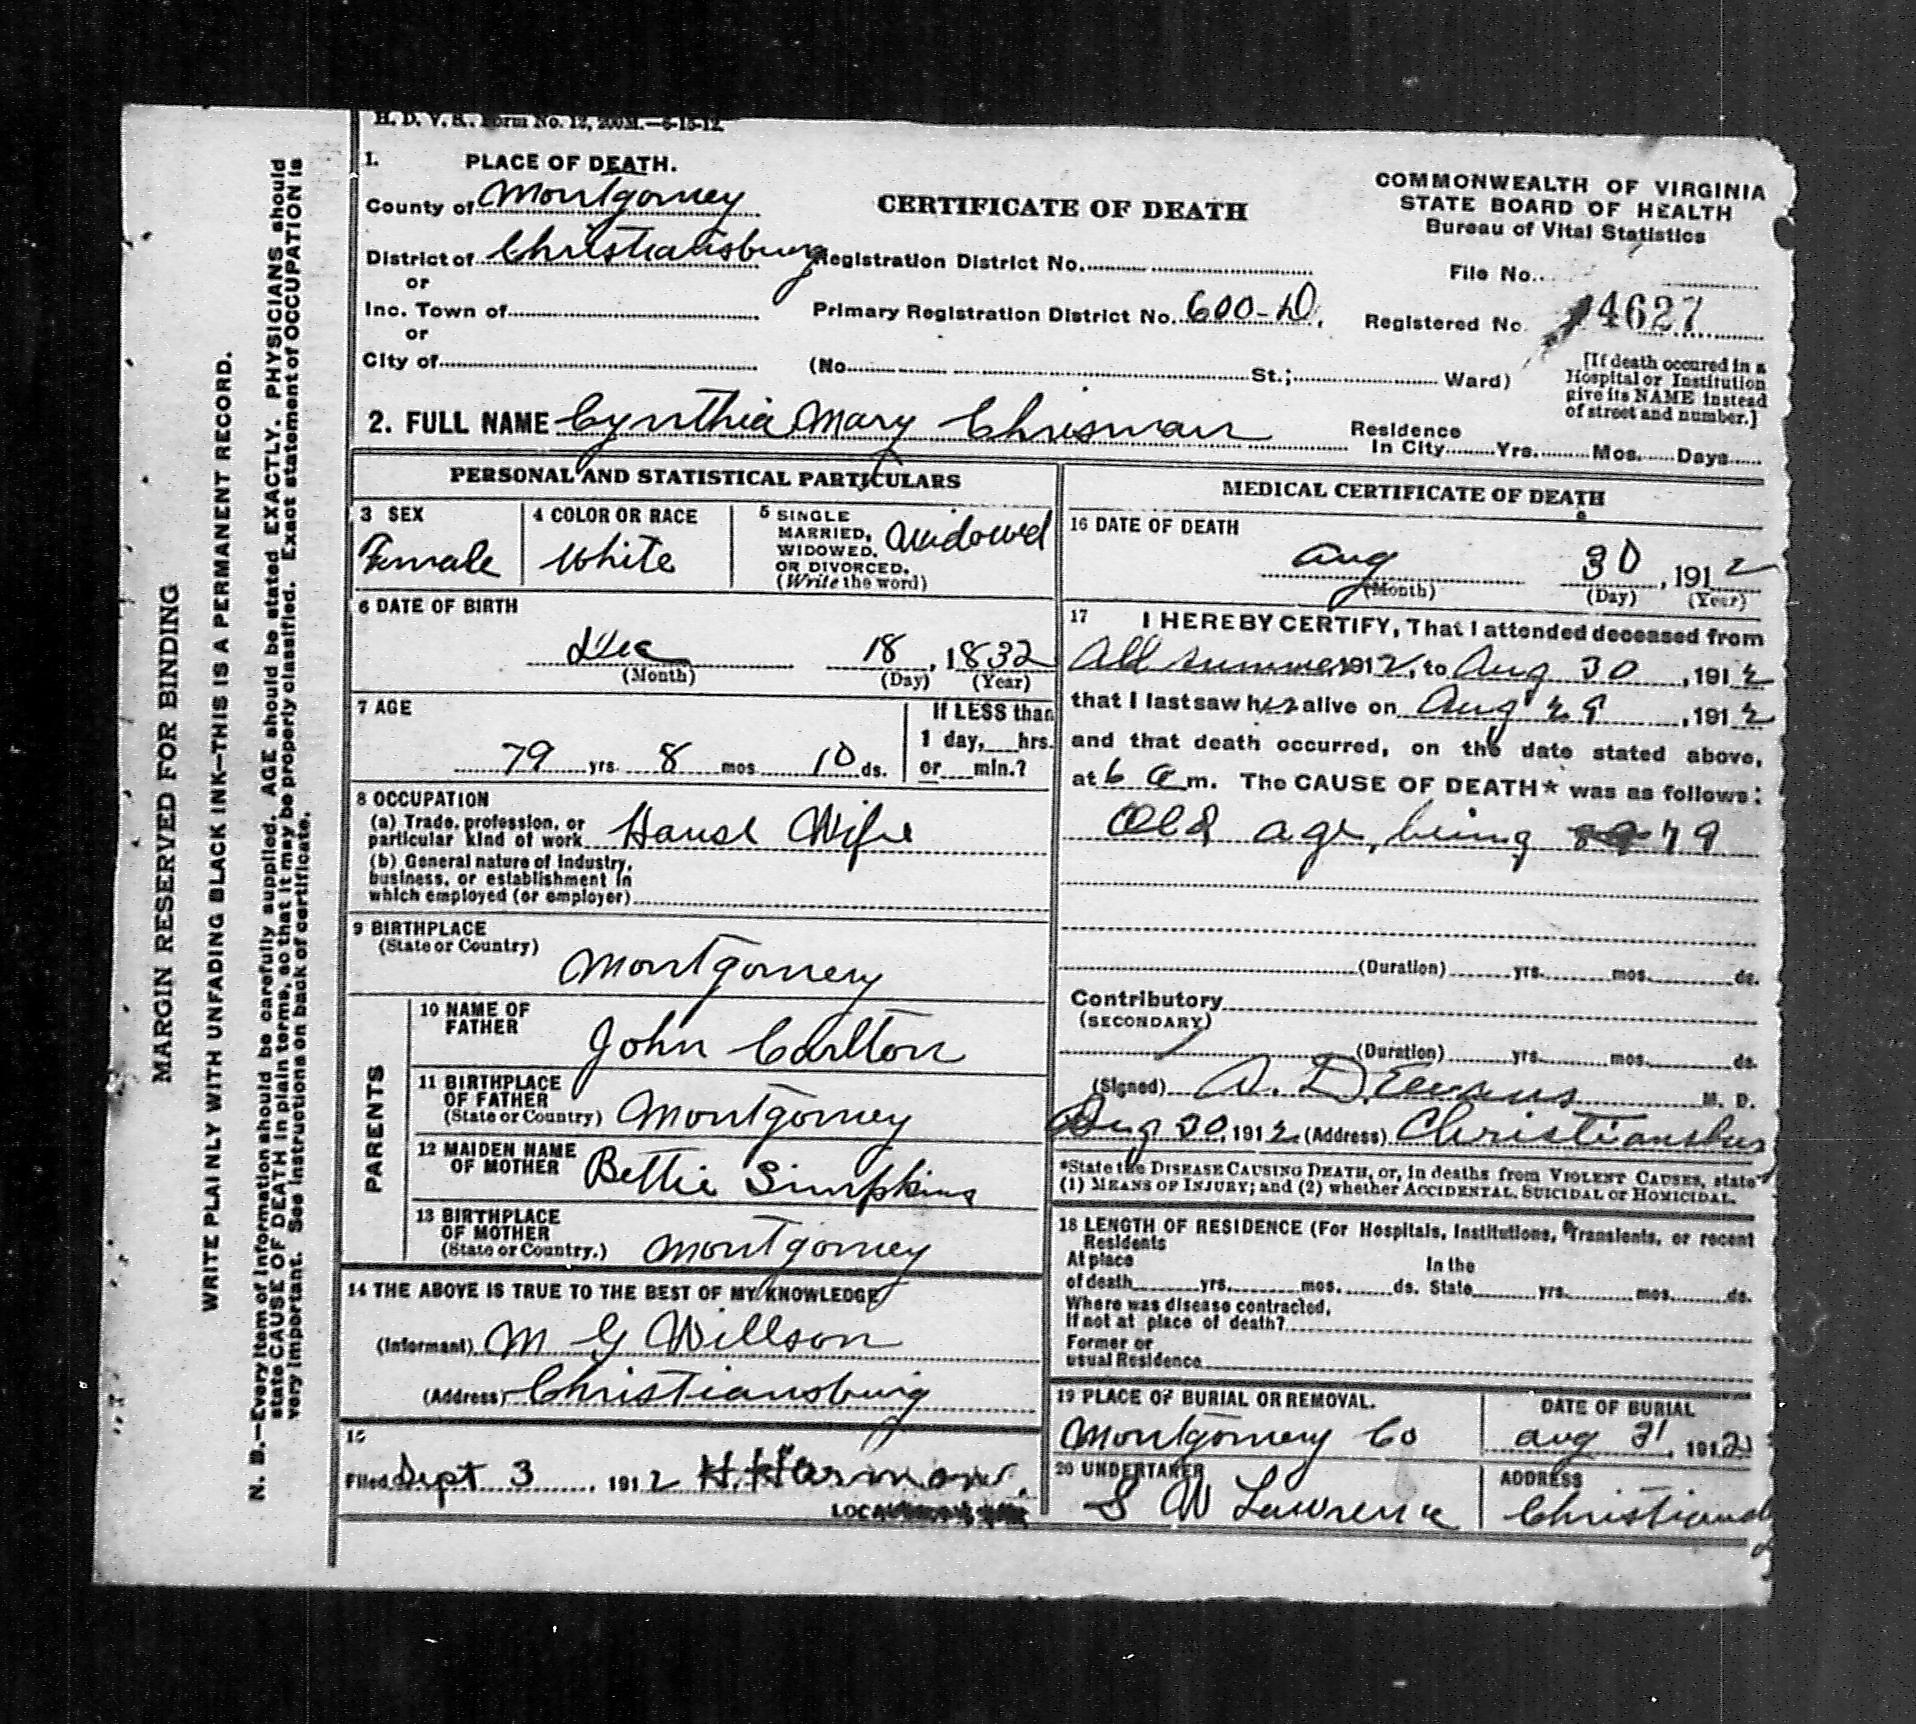 H. D. V. R. Form No. 12, 200M.—6-15-12.
1. PLACE OF DEATH.
County of Montgomery
District of Christiansburg
or
Inc. Town of
or
City of
CERTIFICATE OF DEATH
Registration District No.
Primary Registration District No. 600-D.
(No. St.; Ward)
COMMONWEALTH OF VIRGINIA
STATE BOARD OF HEALTH
Bureau of Vital Statistics
File No.
Registered No. 14627
[If death occured in a
Hospital or Institution
give its NAME instead
of street and number.]
2. FULL NAME Cynthia Mary Chrisman
Residence
In City Yrs. Mos. Days
PERSONAL AND STATISTICAL PARTICULARS
3 SEX
Female
4 COLOR OR RACE
White
5 SINGLE
MARRIED,
WIDOWED,
OR DIVORCED.
(Write the word)
Widowed
6 DATE OF BIRTH
Dec 18, 1832
(Month) (Day) (Year)
7 AGE
79 yrs. 8 mos. 10 ds.
If LESS than
1 day, hrs.
or min.?
8 OCCUPATION
(a) Trade, profession, or
particular kind of work House Wife
(b) General nature of Industry,
business, or establishment in
which employed (or employer)
9 BIRTHPLACE
(State or Country)
Montgomery
PARENTS
10 NAME OF
FATHER
John Carlton
11 BIRTHPLACE
OF FATHER
(State or Country) Montgomery
12 MAIDEN NAME
OF MOTHER Bettie Simpkins
13 BIRTHPLACE
OF MOTHER
(State or Country.) Montgomery
14 THE ABOVE IS TRUE TO THE BEST OF MY KNOWLEDGE
(Informant) M G Willson
(Address) Christiansburg
15
Filed Sept 3, 1912 H. Harman
LOCAL
MEDICAL CERTIFICATE OF DEATH
16 DATE OF DEATH
Aug 30, 1912
(Month) (Day) (Year)
17 I HEREBY CERTIFY, That I attended deceased from
All summer 1912, to Aug 30, 1912
that I last saw her alive on Aug 29, 1912
and that death occurred, on the date stated above,
at 6 a m. The CAUSE OF DEATH* was as follows:
Old age, being 79
(Duration) yrs. mos. ds.
Contributory
(SECONDARY)
(Duration) yrs. mos. ds.
(Signed) A. D. Evans M. D.
Aug 30, 1912 (Address) Christiansburg
*State the DISEASE CAUSING DEATH, or, in deaths from VIOLENT CAUSES, state
(1) MEANS OF INJURY; and (2) whether ACCIDENTAL, SUICIDAL or HOMICIDAL.
18 LENGTH OF RESIDENCE (For Hospitals, Institutions, Transients, or recent
Residents
At place In the
of death yrs. mos. ds. State yrs. mos. ds.
Where was disease contracted,
If not at place of death?
Former or
usual Residence
19 PLACE OF BURIAL OR REMOVAL.
Montgomery Co
DATE OF BURIAL
Aug 31, 1912
20 UNDERTAKER
S W Lawrence
ADDRESS
Christiansb
MARGIN RESERVED FOR BINDING
WRITE PLAINLY WITH UNFADING BLACK INK—THIS IS A PERMANENT RECORD.
N. B.—Every item of information should be carefully supplied. AGE should be stated EXACTLY. PHYSICIANS should
state CAUSE OF DEATH in plain terms, so that it may be properly classified. Exact statement of OCCUPATION is
very important. See instructions on back of certificate.